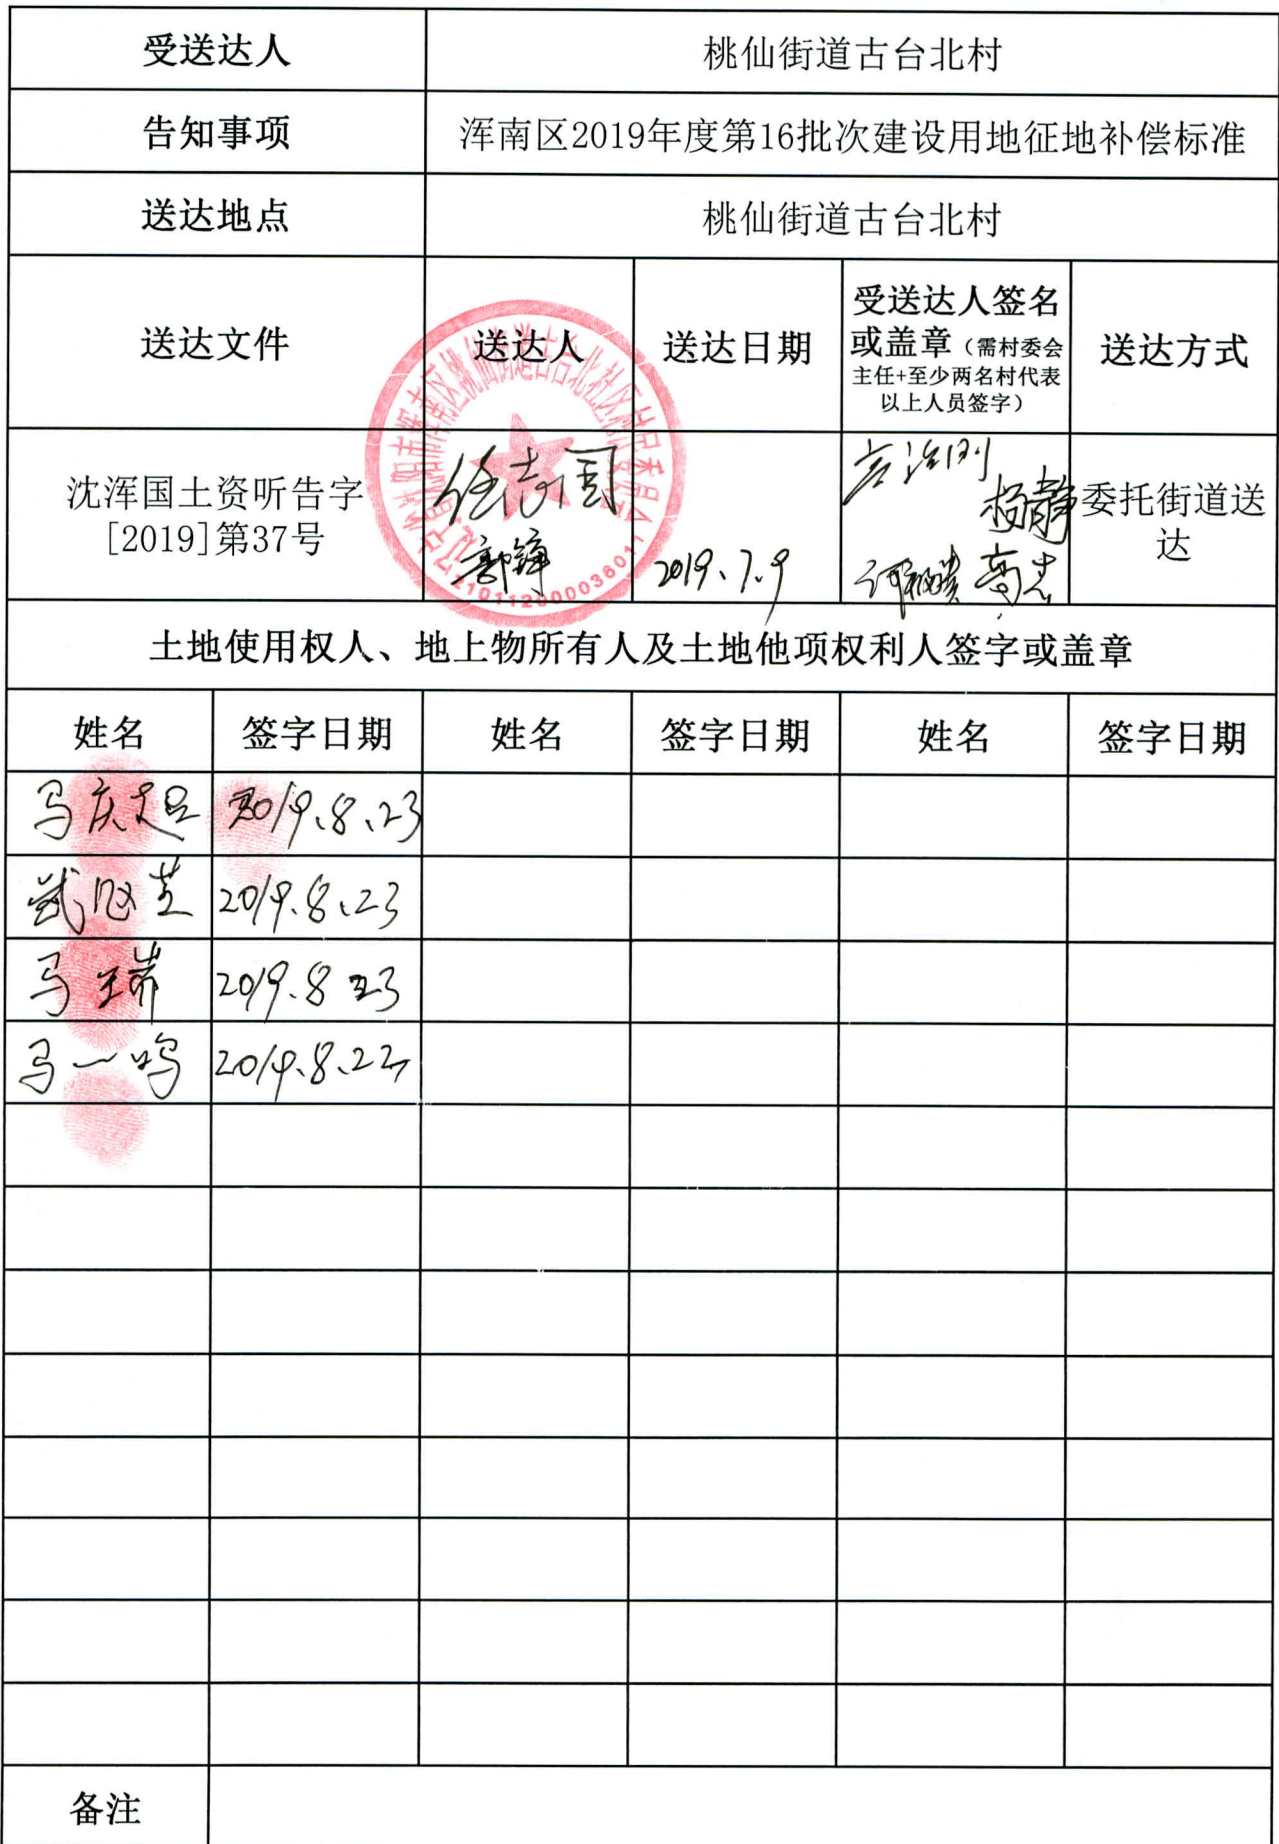 受送达人 桃仙街道古台北村
告知事项 浑南区2019年度第16批次建设用地征地补偿标准
送达地点 桃仙街道古台北村
送达文件 送达人 送达日期 受送达人签名或盖章（需村委会主任+至少两名村代表以上人员签字） 送达方式
沈浑国土资听告字
[2019]第37号
任志国
2019.7.9
杨静
高志
委托街道送
达
21011200003601
土地使用权人、地上物所有人及土地他项权利人签字或盖章
姓名 签字日期 姓名 签字日期 姓名 签字日期
马庆超 2019.8.23
2019.8.23
马瑞 2019.8 23
马一鸣 2019.8.22
备注